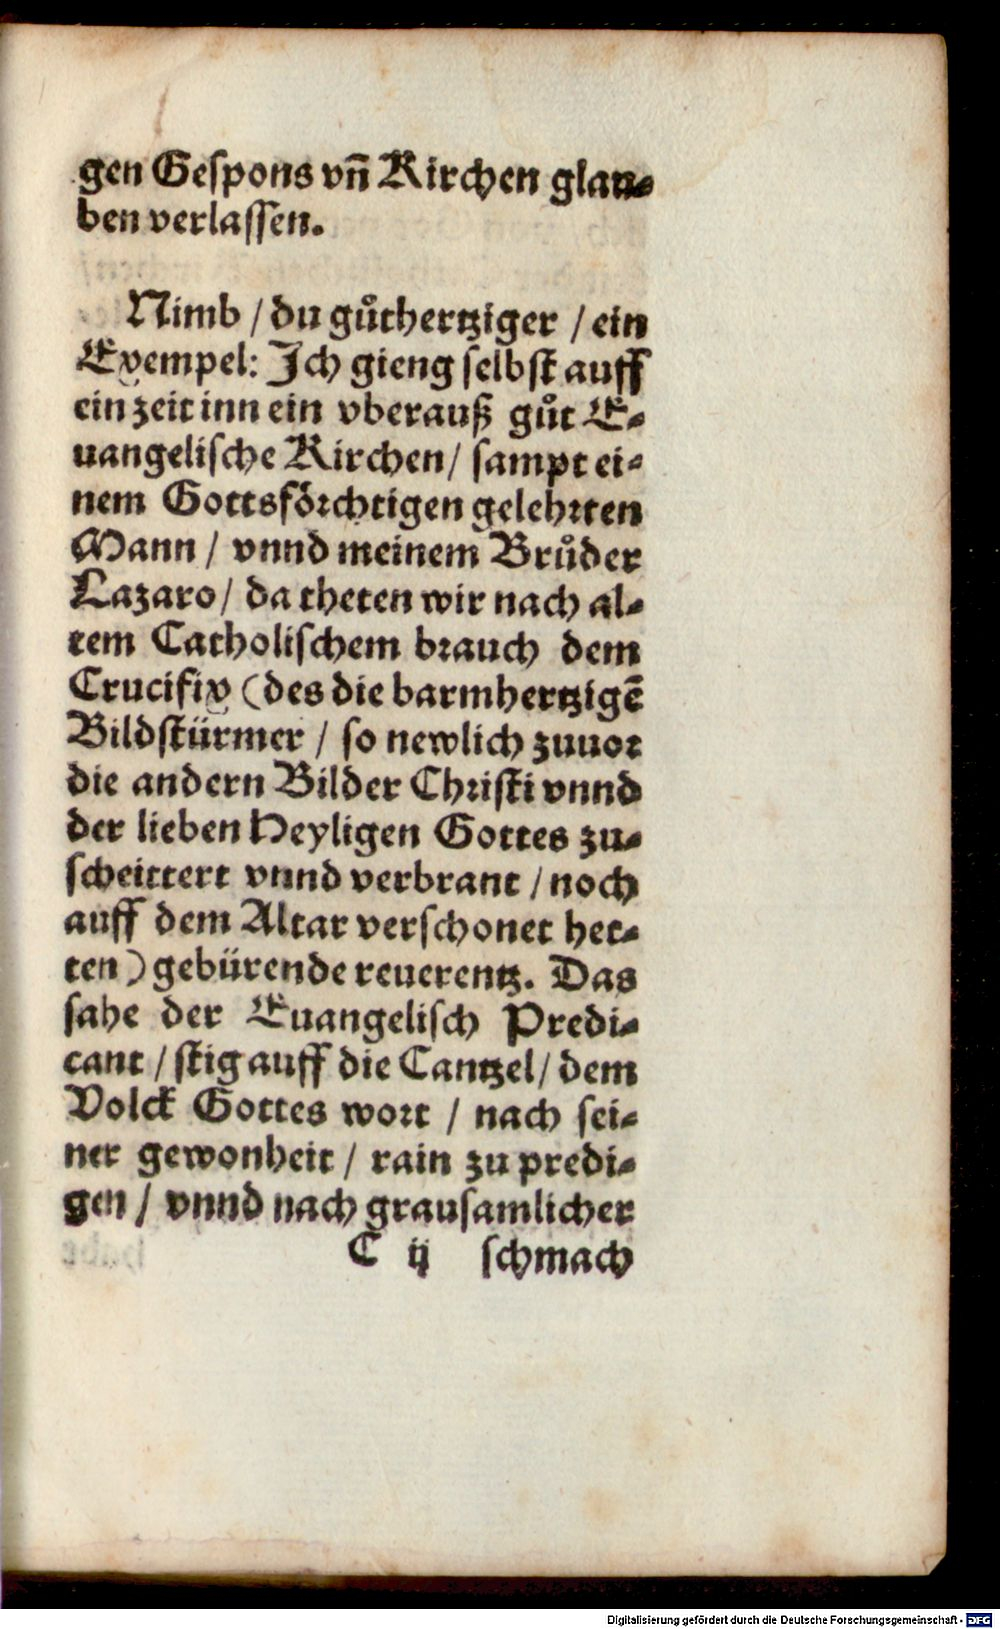 gen Gespons vñ Kirchen glau-
ben verlassen.
Nimb / du gůthertziger / ein
Exempel: Ich gieng selbst auff
ein zeit inn ein vberauß gůt E-
uangelische Kirchen / sampt ei-
nem Gottsförchtigen gelehrten
Mann / vnnd meinem Brůder
Lazaro / da theten wir nach al-
tem Catholischem brauch dem
Crucifix (des die barmhertzigē
Bildstürmer / so newlich zuuor
die andern Bilder Christi vnnd
der lieben Heyligen Gottes zu-
scheittert vnnd verbrant / noch
auff dem Altar verschonet het-
ten) gebürende reuerentz. Das
sahe der Euangelisch Predi-
cant / stig auff die Cantzel / dem
Volck Gottes wort / nach sei-
ner gewonheit / rain zu predi-
gen / vnnd nach grausamlicher
C ij schmach
Digitalisierung gefördert durch die Deutsche Forschungsgemeinschaft - DFG